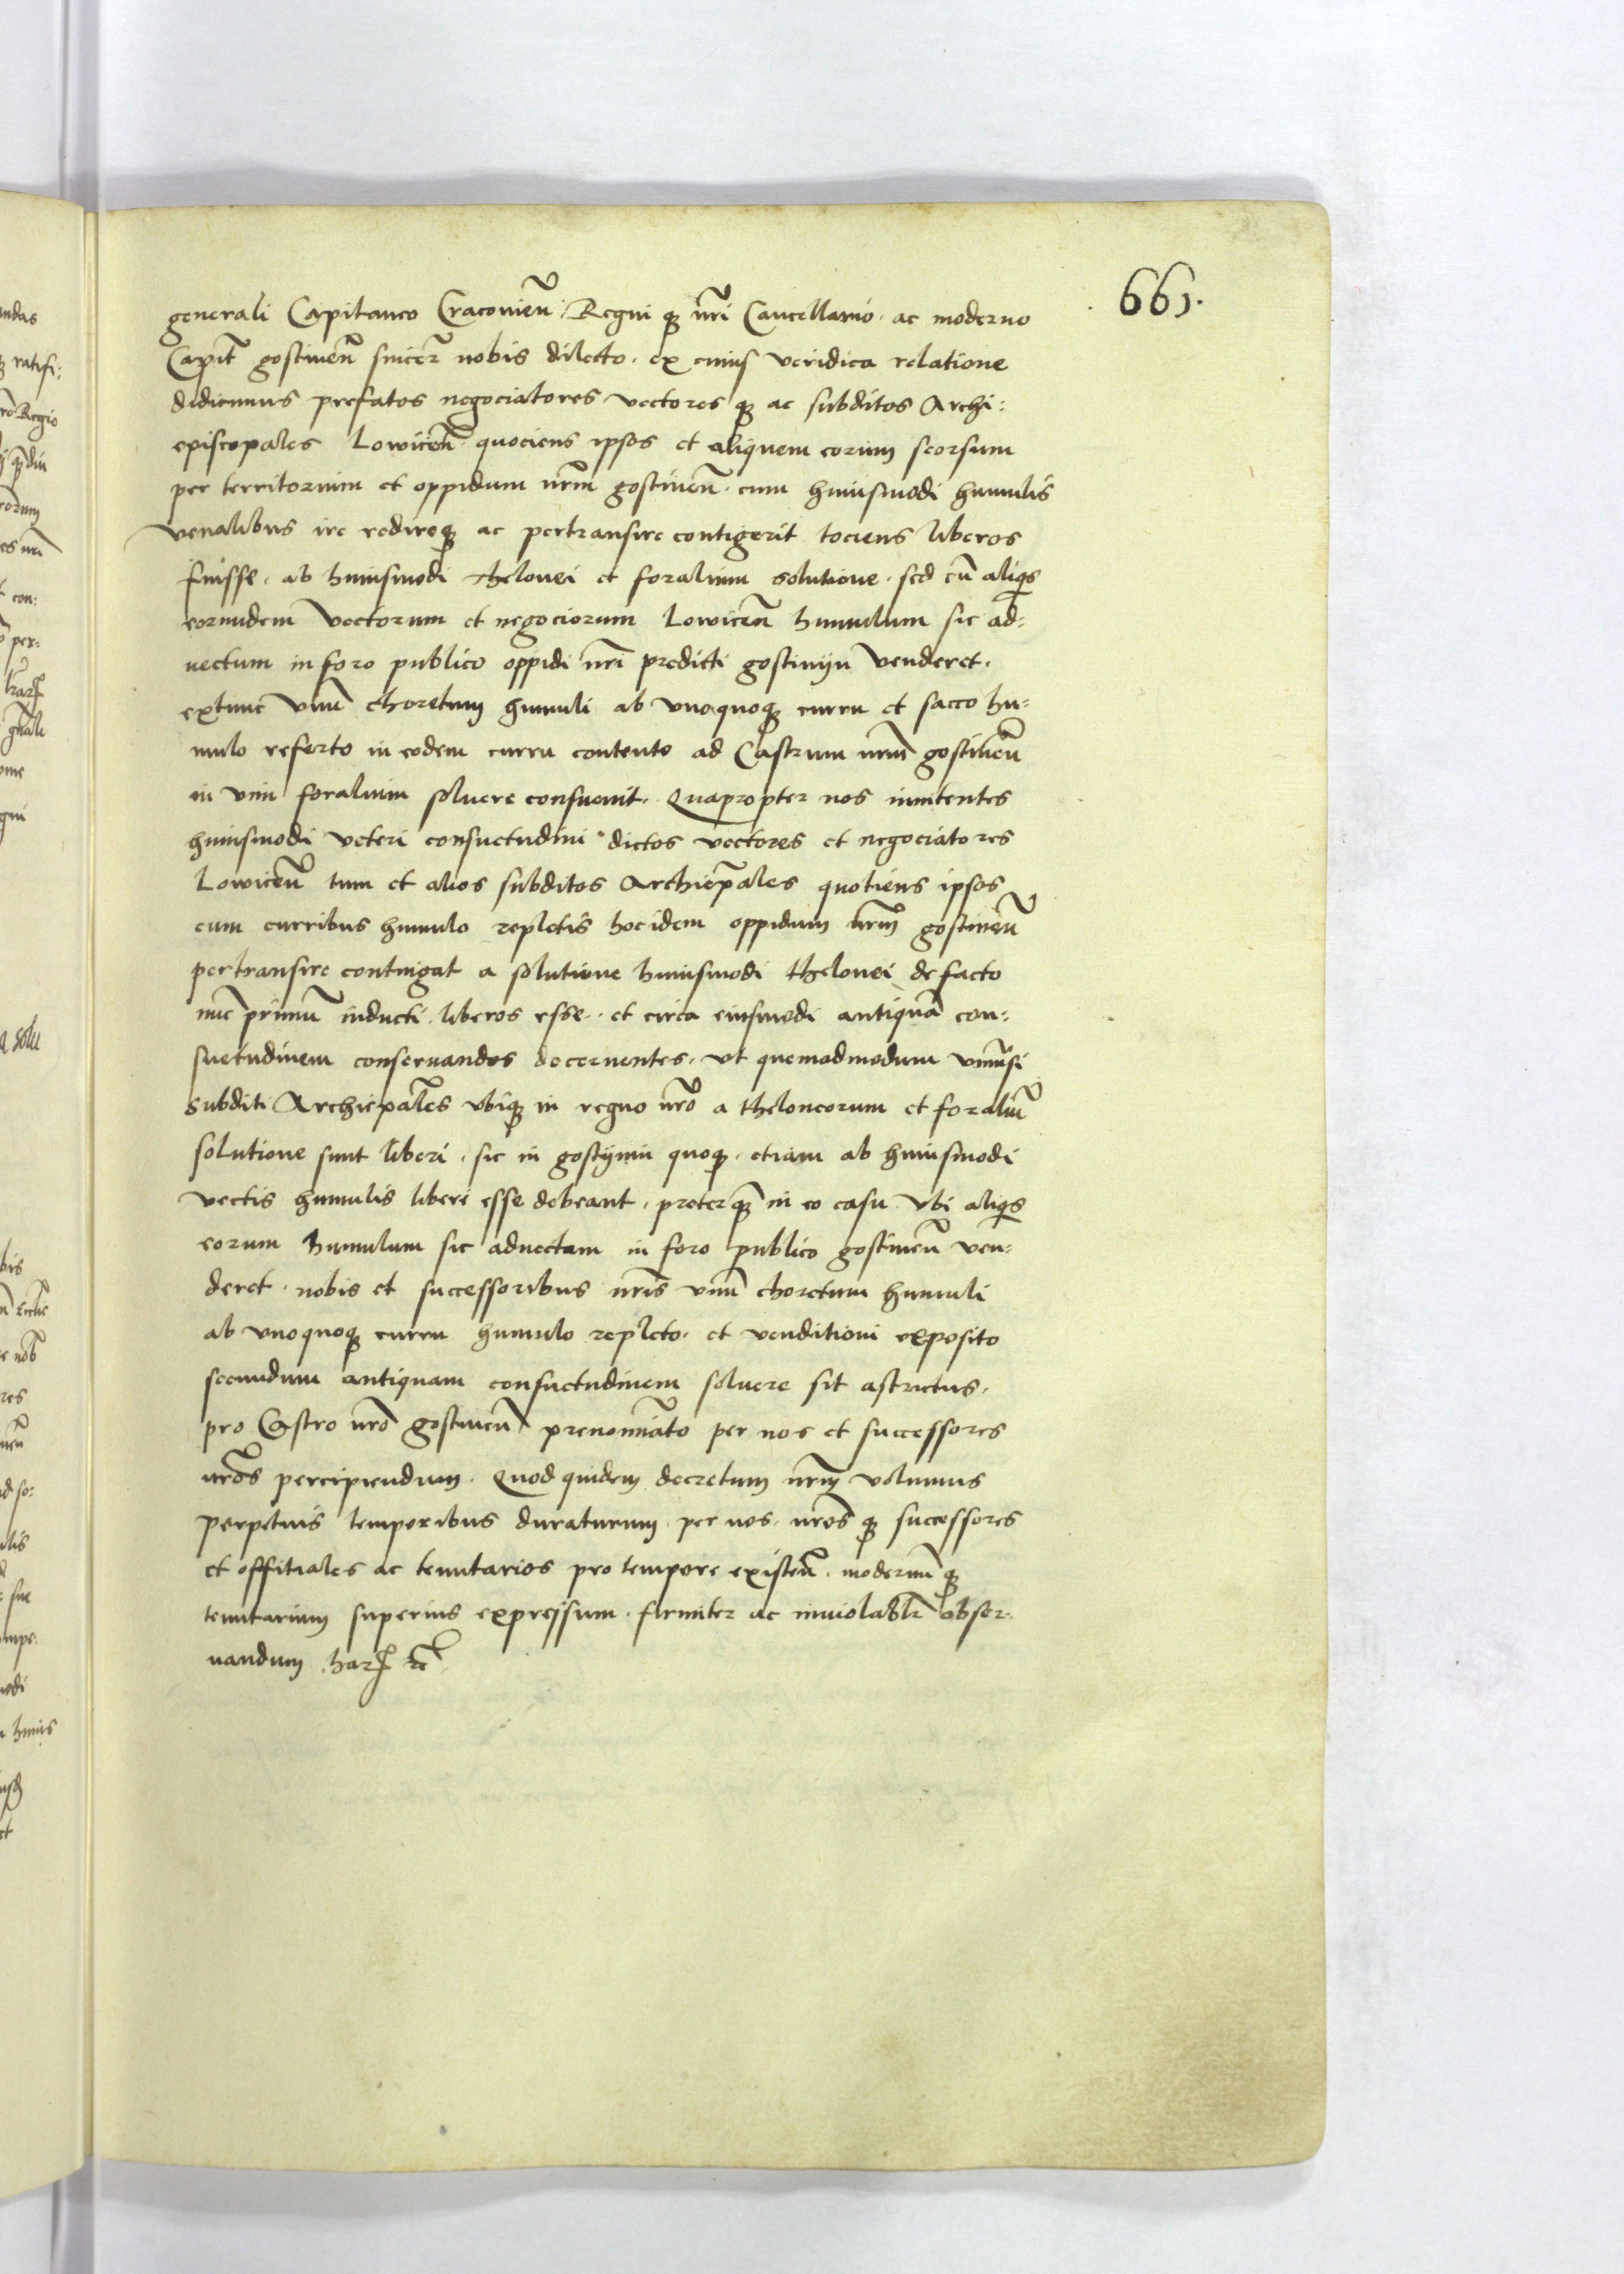 661.
generali Capitaneo Cracovien̄. Regni qꝫ nr̄i Cancellario. ac moderno
Capit̄ gostinen̄ sincer̄ nobis dilecto. ex cuius veridica relatione
didicimus prefatos negociatores vectores qꝫ ac subditos Archi:
episcopales Lowicen̄. quociens ipsos et aliquem eorum seorsum
per territorium et oppidum nr̄m gostinen̄. cum huiusmodi humulis
venalibus ire redireqꝫ ac pertransire contigerit tociens liberos
fuisse. ab huiusmodi thelonei et foralium solutione. sed cū aliqs
eorundem vectorum et negociorum Lowicen̄ humulum sic ad:
uectum in foro publico oppidi nr̄i predicti gostinijn venderet.
extunc vnū choretum humuli ab vnoquoqꝫ curru et sacco hu:
mulo referto in eodem curru contento ad Castrum nr̄m gostinen̄
in vim foralium soluere consueuit. Quapropter nos innitentes
huiusmodi veteri consuetudini dictos vectores et negociatores
Lowicen̄ tum et alios subditos Archiep̄ales quotiens ipsos
cum curribus humulo repletis hocidem oppidum nr̄m gostinen̄
pertransire contingat a solutione huiusmodi thelonei de facto
nūc primū inducti. liberos esse. et circa eiusmodi antiquā con:
suetudinem conseruandos decernentes. vt quemadmodum vniu̅si
subditi Archiep̄ales vbiqꝫ in regno nr̄o a theloneorum et foraliū
solutione sunt liberi. sic in gostijnin quoqꝫ. etiam ab huiusmodi
vectis humulis liberi esse debeant. preterqꝫ̄ in eo casu vbi aliqs
eorum humulum sic aduectam in foro publico gostinen̄ ven:
deret. nobis et successoribus nr̄is vnū choretum humuli
ab vnoquoqꝫ curru humulo repleto. et venditioni exposito
secundum antiquam consuetudinem soluere sit astrictus.
pro Castro nr̄o gostinen̄ prenomīato per nos et successores
nr̄os percipiendum. Quod quidem decretum nr̄m volumus
perpetuis temporibus duraturum. per nos. nr̄os qꝫ successores
et offitiales ac tenutarios pro tempore existen̄. modernū qꝫ
tenutarium superius expressum. firmiter ac inuiolabłr obser:
uandum. harꝫ ꝛc̄